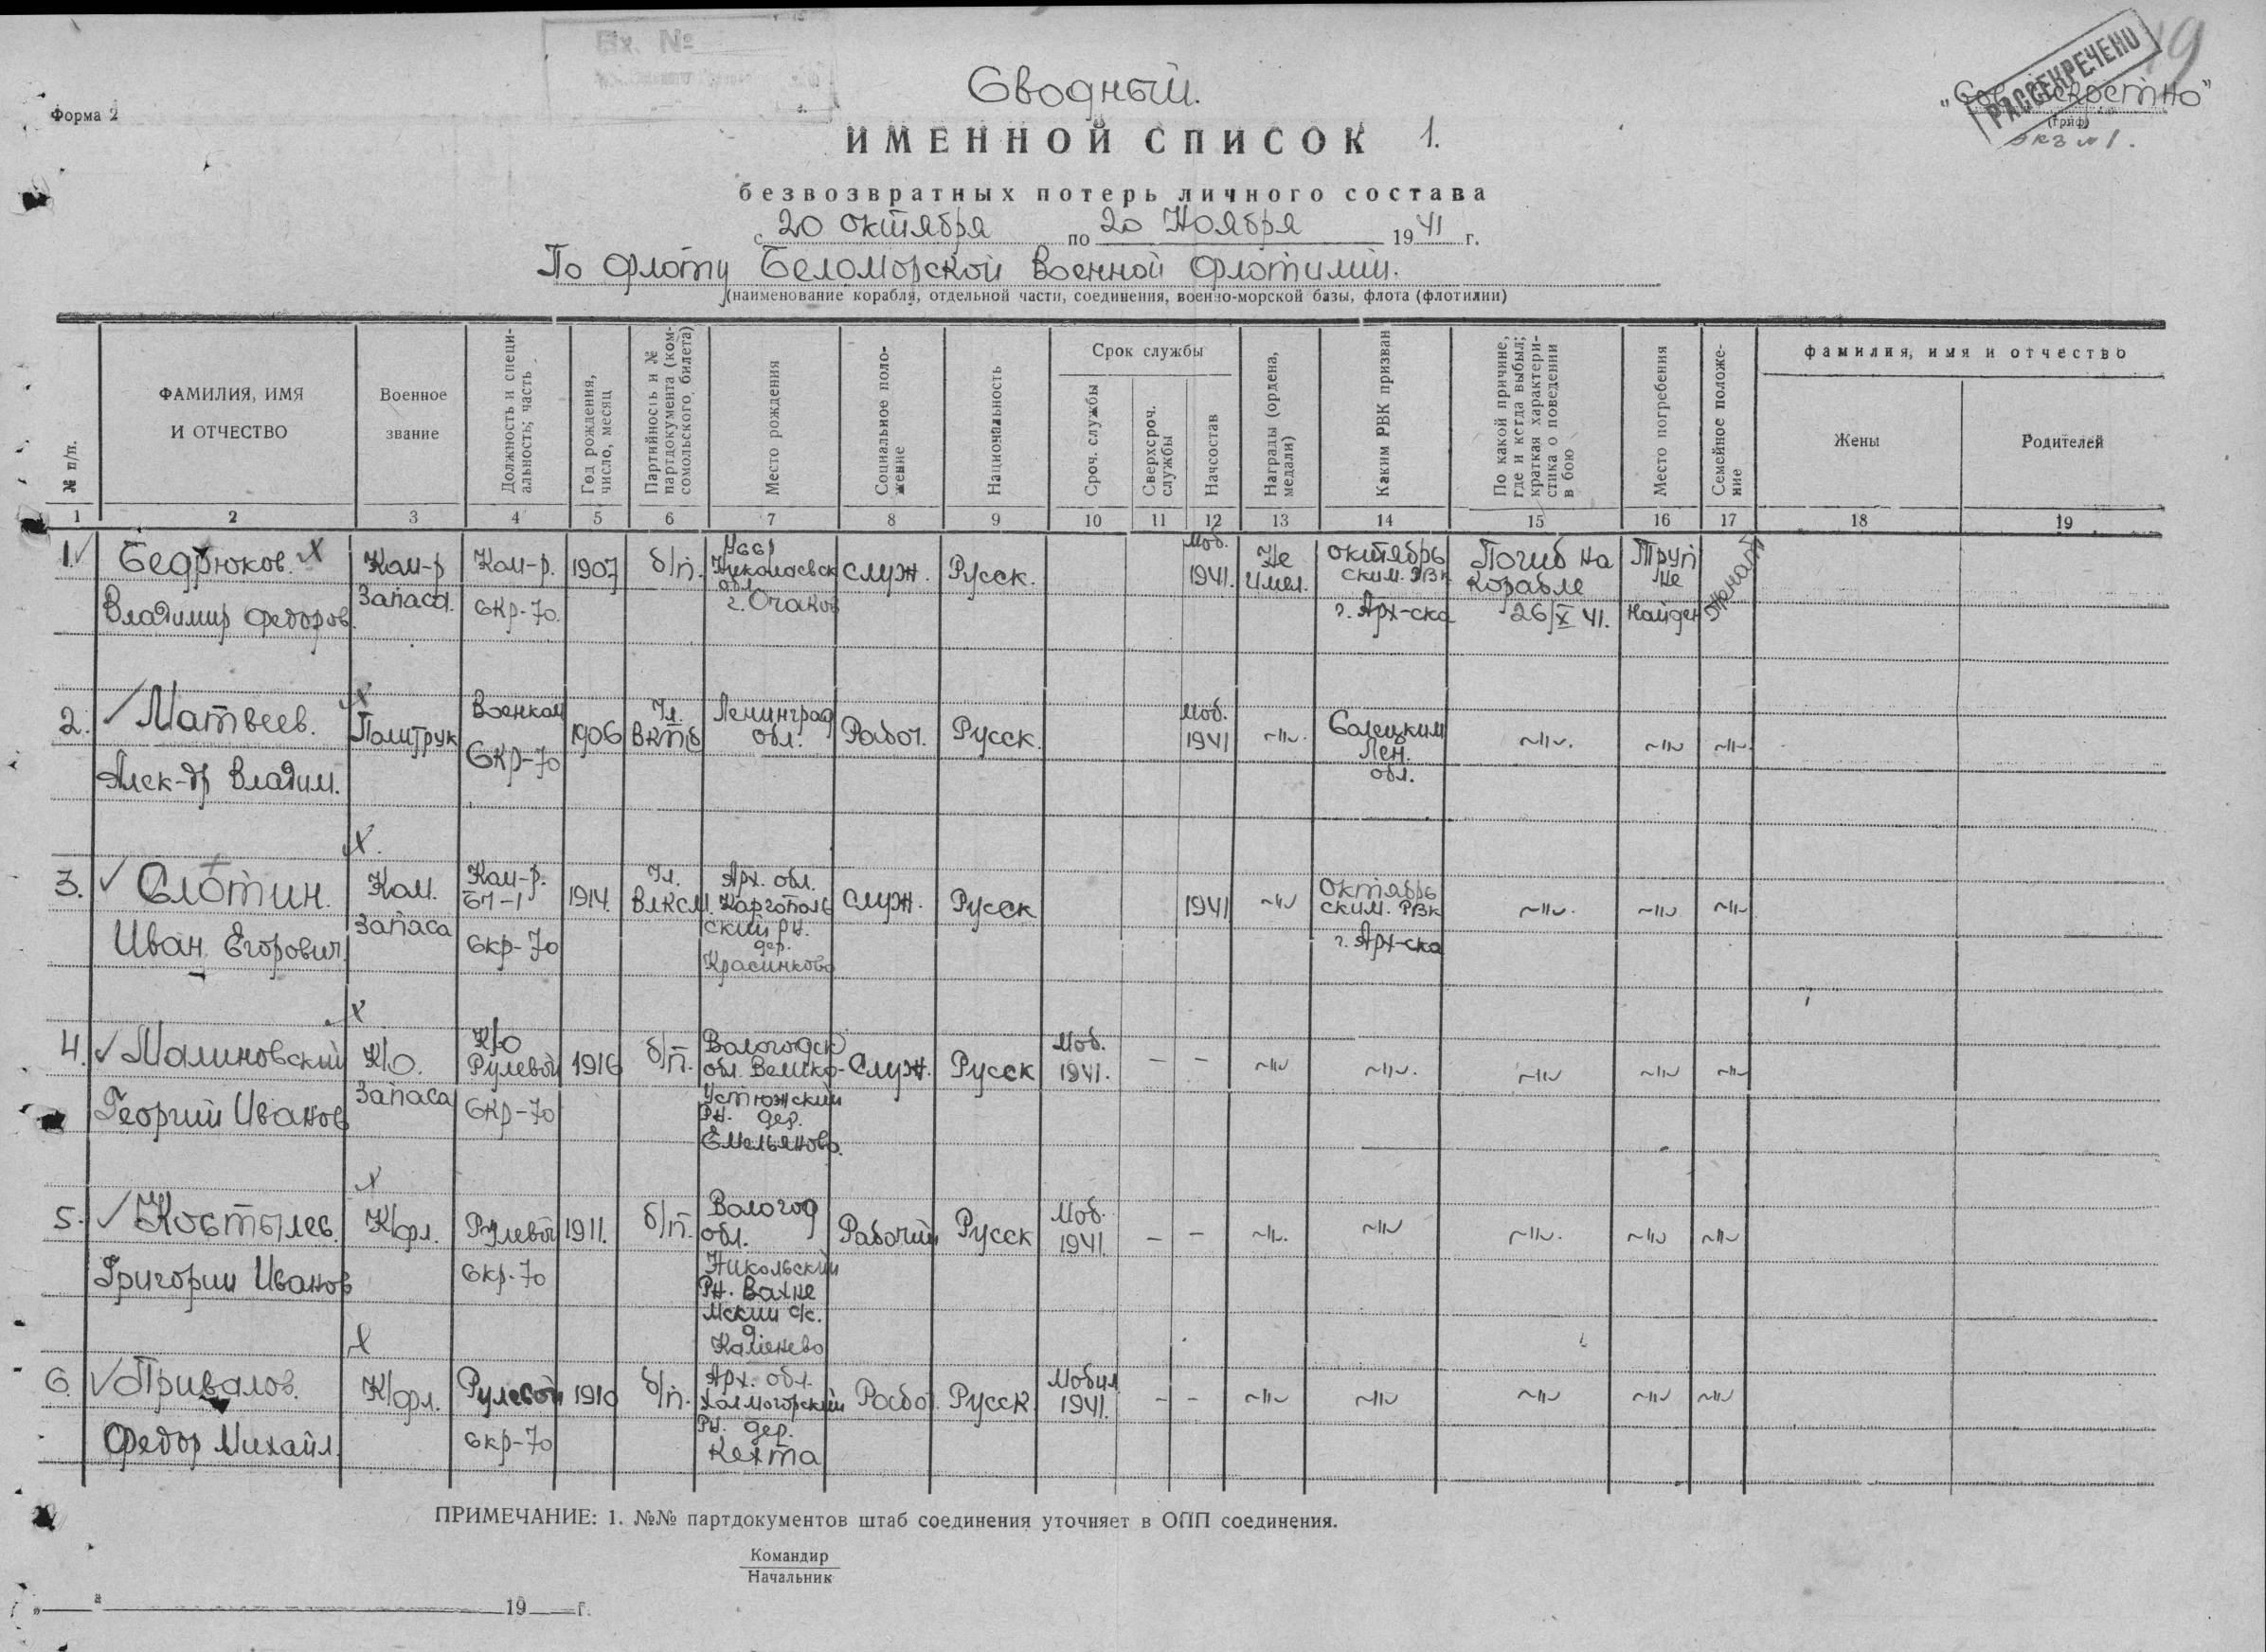 Вх. №
19
Сводный.
Форма 2
"Сов. секретно"
РАССЕКРЕЧЕНО
(гриф)
экз № 1.
ИМЕННОЙ СПИСОК 1.
безвозвратных потерь личного состава
с 20 октября по 20 Ноября 1941 г.
По флоту Беломорской Военной флотилии.
(наименование корабля, отдельной части, соединения, военно-морской базы, флота (флотилии)
№ п/п.
ФАМИЛИЯ, ИМЯ
И ОТЧЕСТВО
Военное
звание
Должность и специ-
альность; часть
Год рождения,
число, месяц
Партийность и №
партдокумента (ком-
сомольского билета)
Место рождения
Социальное поло-
жение
Национальность
Срок службы
Сроч. службы
Сверхсроч.
службы
Начсостав
Награды (ордена,
медали)
Каким РВК призван
По какой причине,
где и когда выбыл;
краткая характери-
стика о поведении
в бою
Место погребения
Семейное положе-
ние
фамилия, имя и отчество
Жены
Родителей
1 2 3 4 5 6 7 8 9 10 11 12 13 14 15 16 17 18 19
1. Бедрюков.
Владимир Федоров.
Ком-р
Запаса.
Ком-р.
СКР-70.
1907
б/п.
УССР
Николаевск
обл.
г. Очаков
служ.
Русск.
Моб.
1941.
Не
имел.
октябрь
ским. РВК
г. Арх-ска
Погиб на
корабле
26/X 41.
Труп
не
найден
женат
2. Матвеев.
Алек-др Владим.
Политрук
Военком
СКР-70
1906
Чл.
ВКПб
Ленинград
обл.
Работ.
Русск.
Моб.
1941
~"~.
Солецким
Лен.
обл.
~"~.
~"~
~"~.
3. Слотин.
Иван Егорович.
Ком.
Запаса
Ком-р.
БЧ-1
СКР-70
1914.
Чл.
ВЛКСМ.
Арх. обл.
Каргополь
ский рн.
дер.
Красинково
служ.
Русск
1941
~"~
Октябрь
ским. РВК
г. Арх-ска
~"~.
~"~
~"~
4. Малиновский
Георгий Иванов
К/О.
Запаса
К/О
Рулевой
СКР-70
1916
б/п.
Вологодск
обл. Велико-
Устюжский
рн. дер.
Емельяново.
Служ.
Русск
Моб.
1941.
–
–
~"~
~"~.
~"~
~"~
~"~
5. Костылев.
Григорий Иванов
К/фл.
Рулевой
СКР-70
1911.
б/п.
Вологод
обл.
Никольский
рн. Вахне
мский с/с.
д
Каменево
Рабочий
Русск
Моб.
1941.
–
–
~"~.
~"~
~"~.
~"~
~"~
6. Привалов.
Федор Михайл.
К/фл.
Рулевой
СКР-70
1910
б/п.
Арх. обл.
Холмогорский
рн. дер.
Кехта
Рабо.
Русск.
Мобил
1941.
–
–
~"~
~"~
~"~
~"~
~"~
ПРИМЕЧАНИЕ: 1. №№ партдокументов штаб соединения уточняет в ОПП соединения.
Командир
Начальник
19 г.